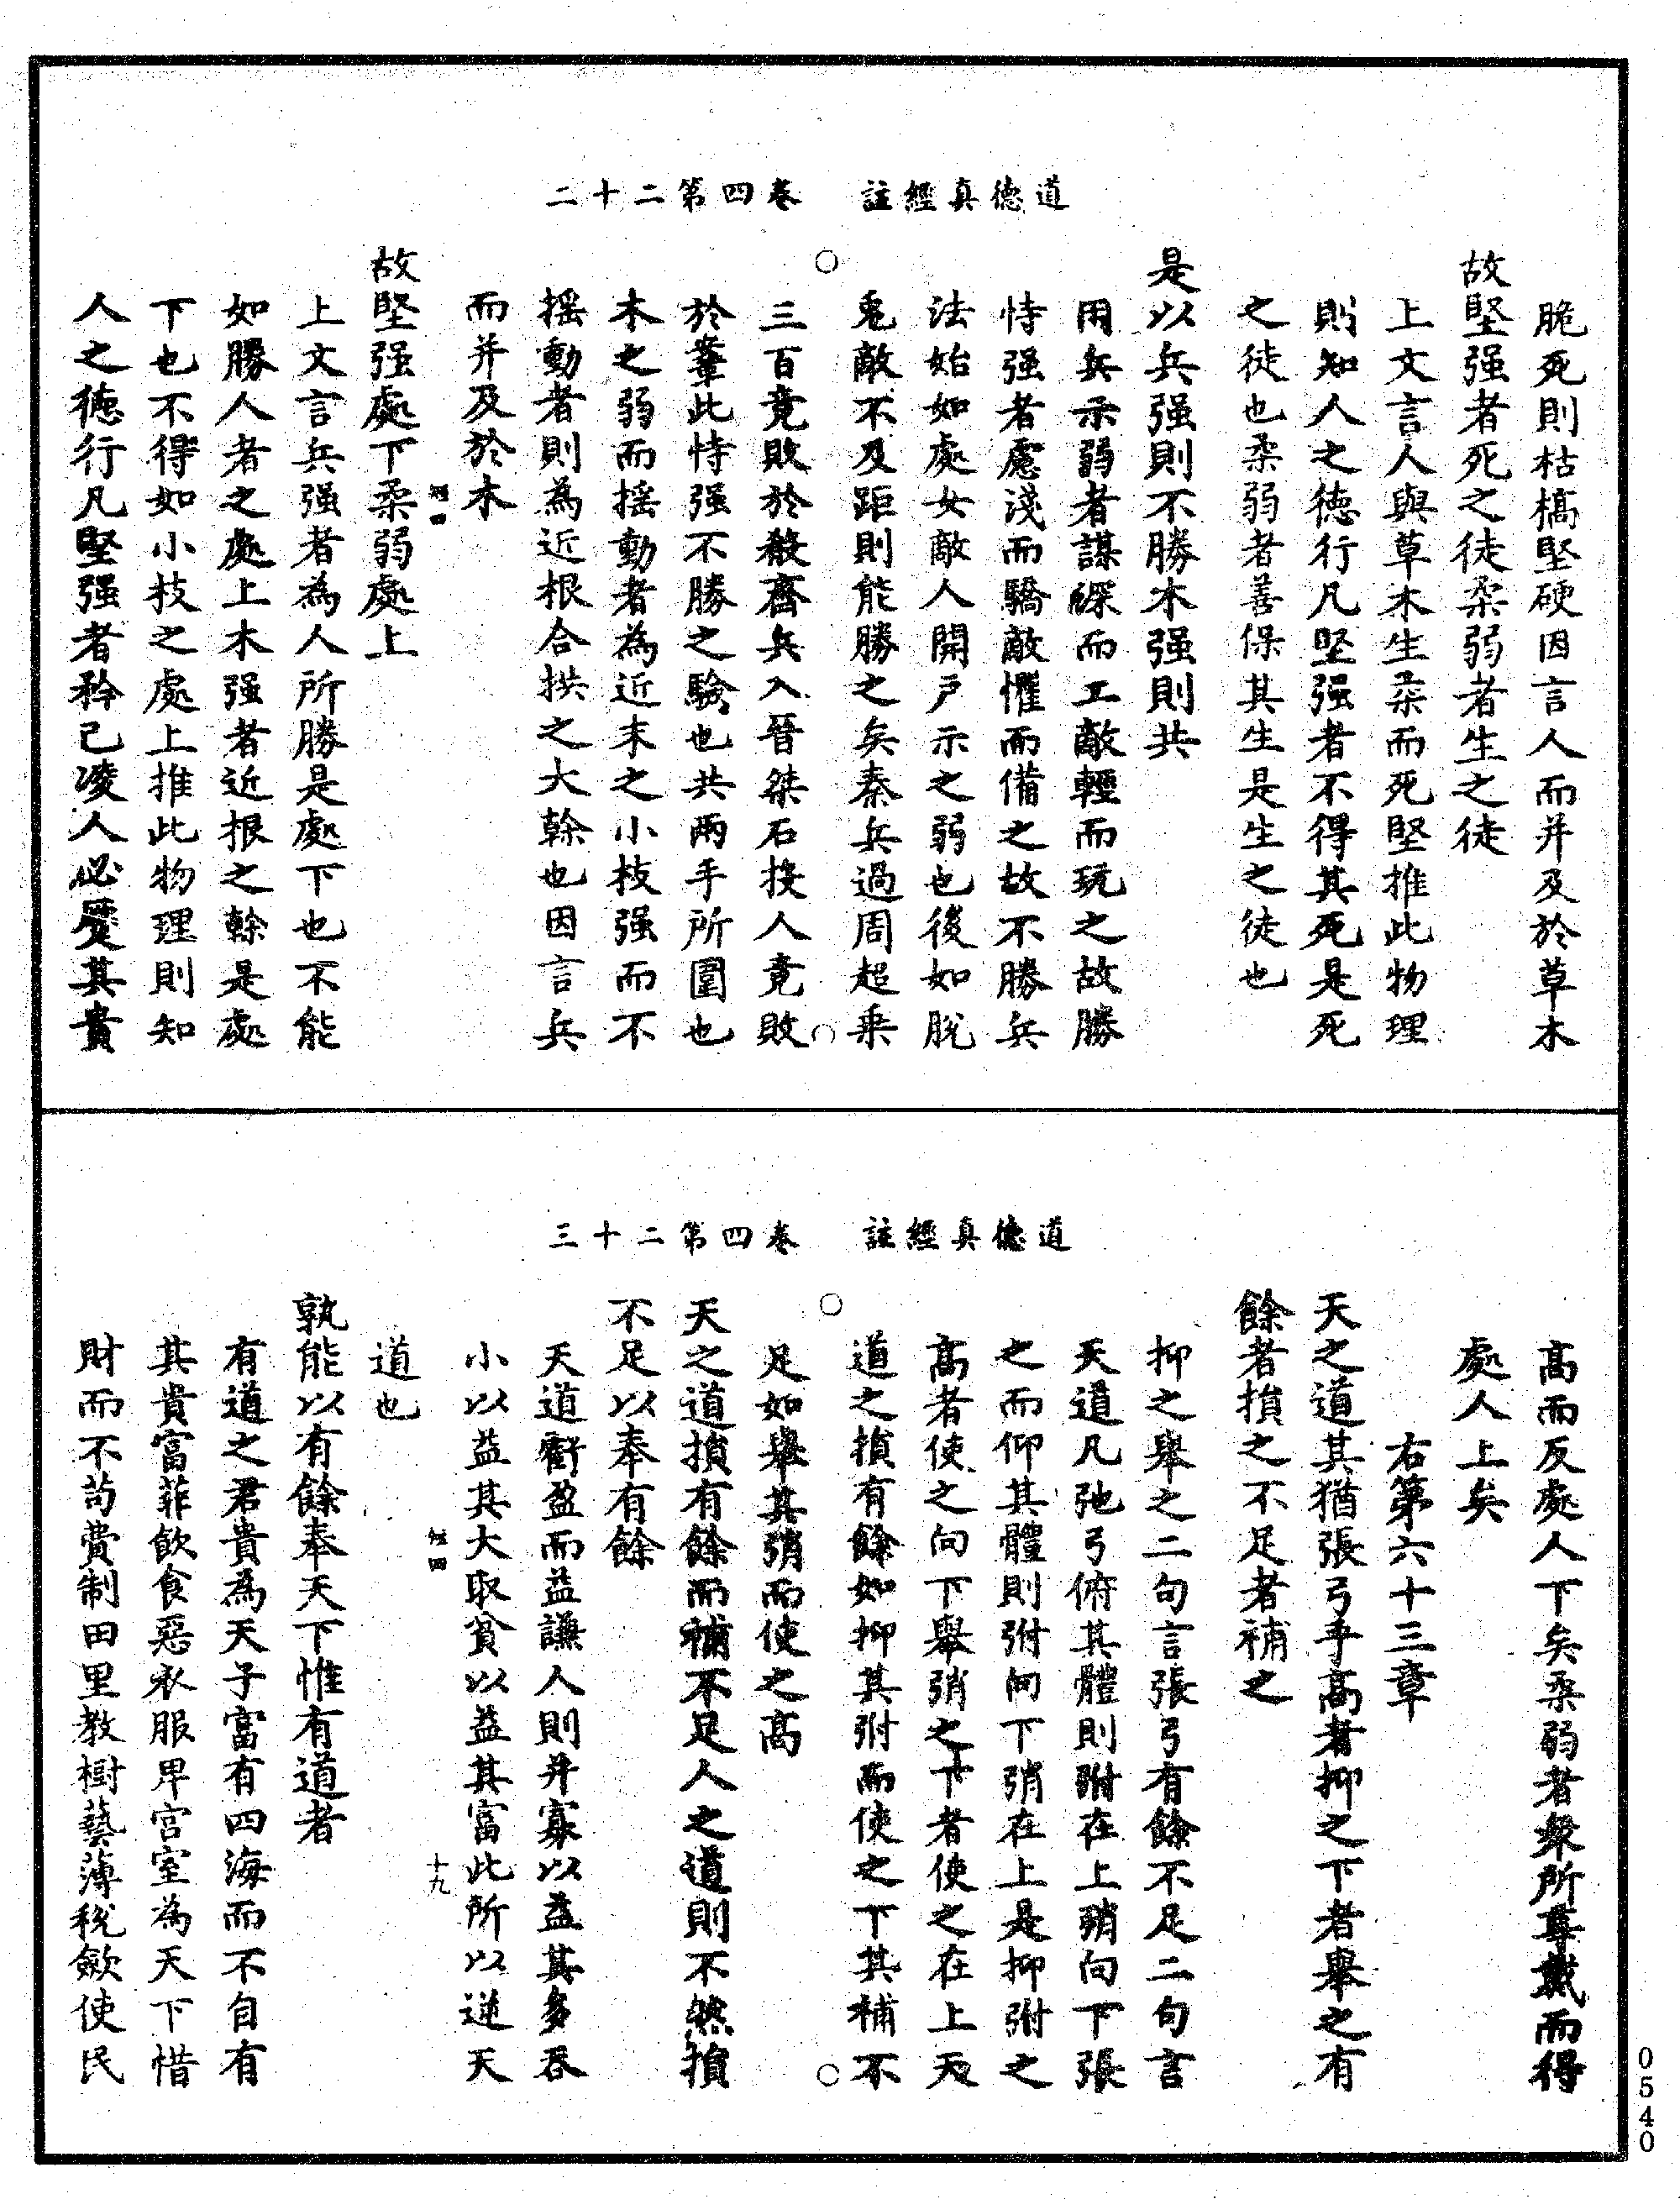 道德真經註　卷四第二十二
脆死則枯槁堅硬因言人而并及於草木
故堅强者死之徒柔弱者生之徒
上文言人與草木生柔而死堅推此物理
則知人之德行凡堅强者不得其死是死
之徒也柔弱者善保其生是生之徒也
是以兵强則不勝木强則共
用兵示弱者謀深而工敵輕而玩之故勝
恃强者慮淺而驕敵懼而備之故不勝兵
法始如處女敵人開戶示之弱也後如脫
兎敵不及距則能勝之矣秦兵過周超乗
三百竟敗於殽齊兵入晉桀石投人竟敗
於鞌此恃强不勝之驗也共兩手所圍也
木之弱而揺動者為近末之小枝强而不
揺動者則為近根合拱之大榦也因言兵
而并及於木
故堅强處下柔弱處上
上文言兵强者為人所勝是處下也不能
如勝人者之處上木强者近根之榦是處
下也不得如小枝之處上推此物理則知
人之德行凡堅强者矜己凌人必屢其貴
道德真經註　卷四第二十三
高而反處人下矣柔弱者衆所尊戴而得
處人上矣
右第六十三章
天之道其猶張弓乎高者抑之下者舉之有
餘者損之不足者補之
抑之舉之二句言張弓有餘不足二句言
天道凡弛弓俯其體則弣在上弰向下張
之而仰其體則弣向下弰在上是抑弣之
高者使之向下舉弰之下者使之在上天
道之損有餘如抑其弣而使之下其補不
足如舉其弰而使之高
天之道損有餘而補不足人之道則不然損
不足以奉有餘
天道虧盈而益謙人則并寡以益其多吞
小以益其大取貧以益其富此所以逆天
道也
十九
孰能以有餘奉天下惟有道者
有道之君貴為天子富有四海而不自有
其貴富菲飲食惡衣服卑宮室為天下惜
財而不苟費制田里教樹藝薄稅歛使民
0540